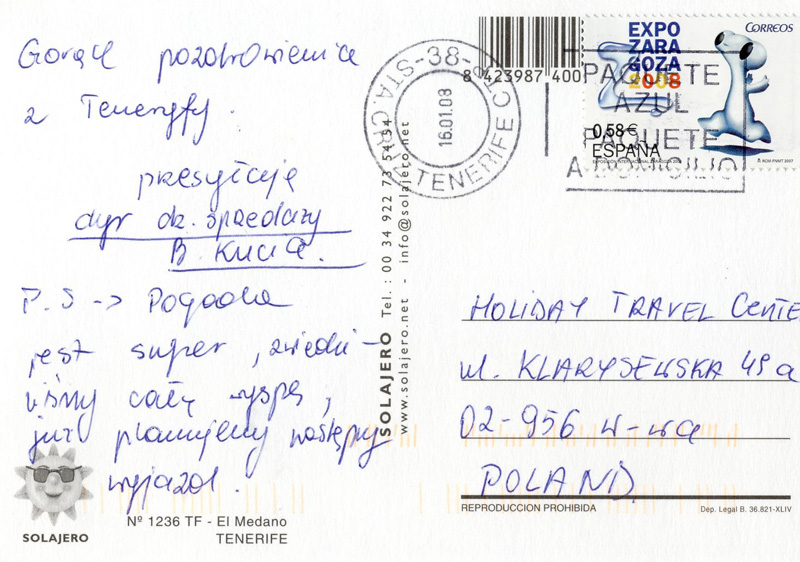 Gorące pozdrowienia
z Teneryfy
przesyłają
dyr dz. sprzedaży
B. Kucia.
P.S -> Pogoda
jest super, zwiedzi-
liśmy całą wyspę,
już planujemy następny
wyjazd.
SOLAJERO
Nº 1236 TF - El Medano
TENERIFE
SOLAJERO Tel.: 00 34 922 73 54 54
www.solajero.net - info@solajero.net
8 423987 400
-38- STA. CRUZ
16.01.08
TENERIFE
PAQUETE
AZUL
PAQUETE
A DOMICILIO
EXPO
ZARA
GOZA
2008
CORREOS
0,58€
ESPAÑA
HOLIDAY TRAVEL CENTE
ul. KLARYSEWSKA 49a
02-956 W-wa
POLAND
REPRODUCCION PROHIBIDA
Dep. Legal B. 36.821-XLIV